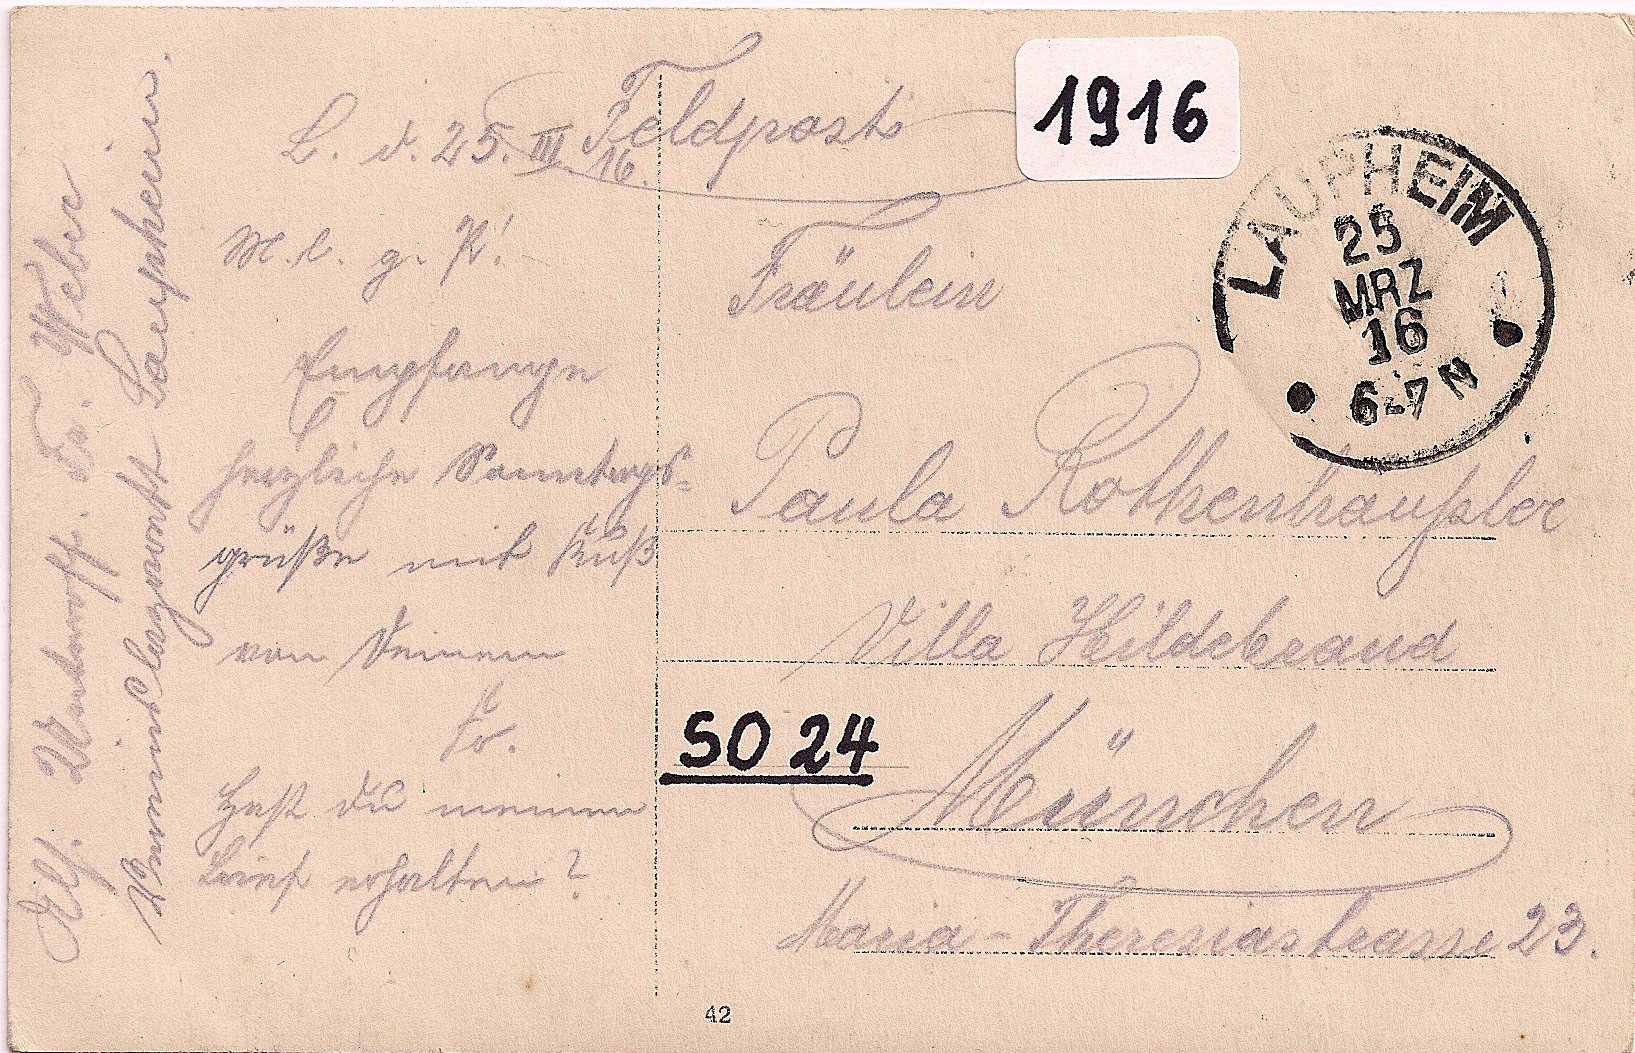 1916
Feldpost
L. d. 25. III 16.
M. l. g. P!
Empfange
herzliche Samstags-
grüße mit Kuß
von Deinem
Fr.
Hast du meinen
Brief erhalten?
Fräulein
Paula Rothenhäußler
Villa Hildebrand
München
Maria-Theresiastrasse 23.
LAUPHEIM
25
MRZ
16
6-7 N
SO 24
42
Unteroff. Fr. Weber
Laupheim.